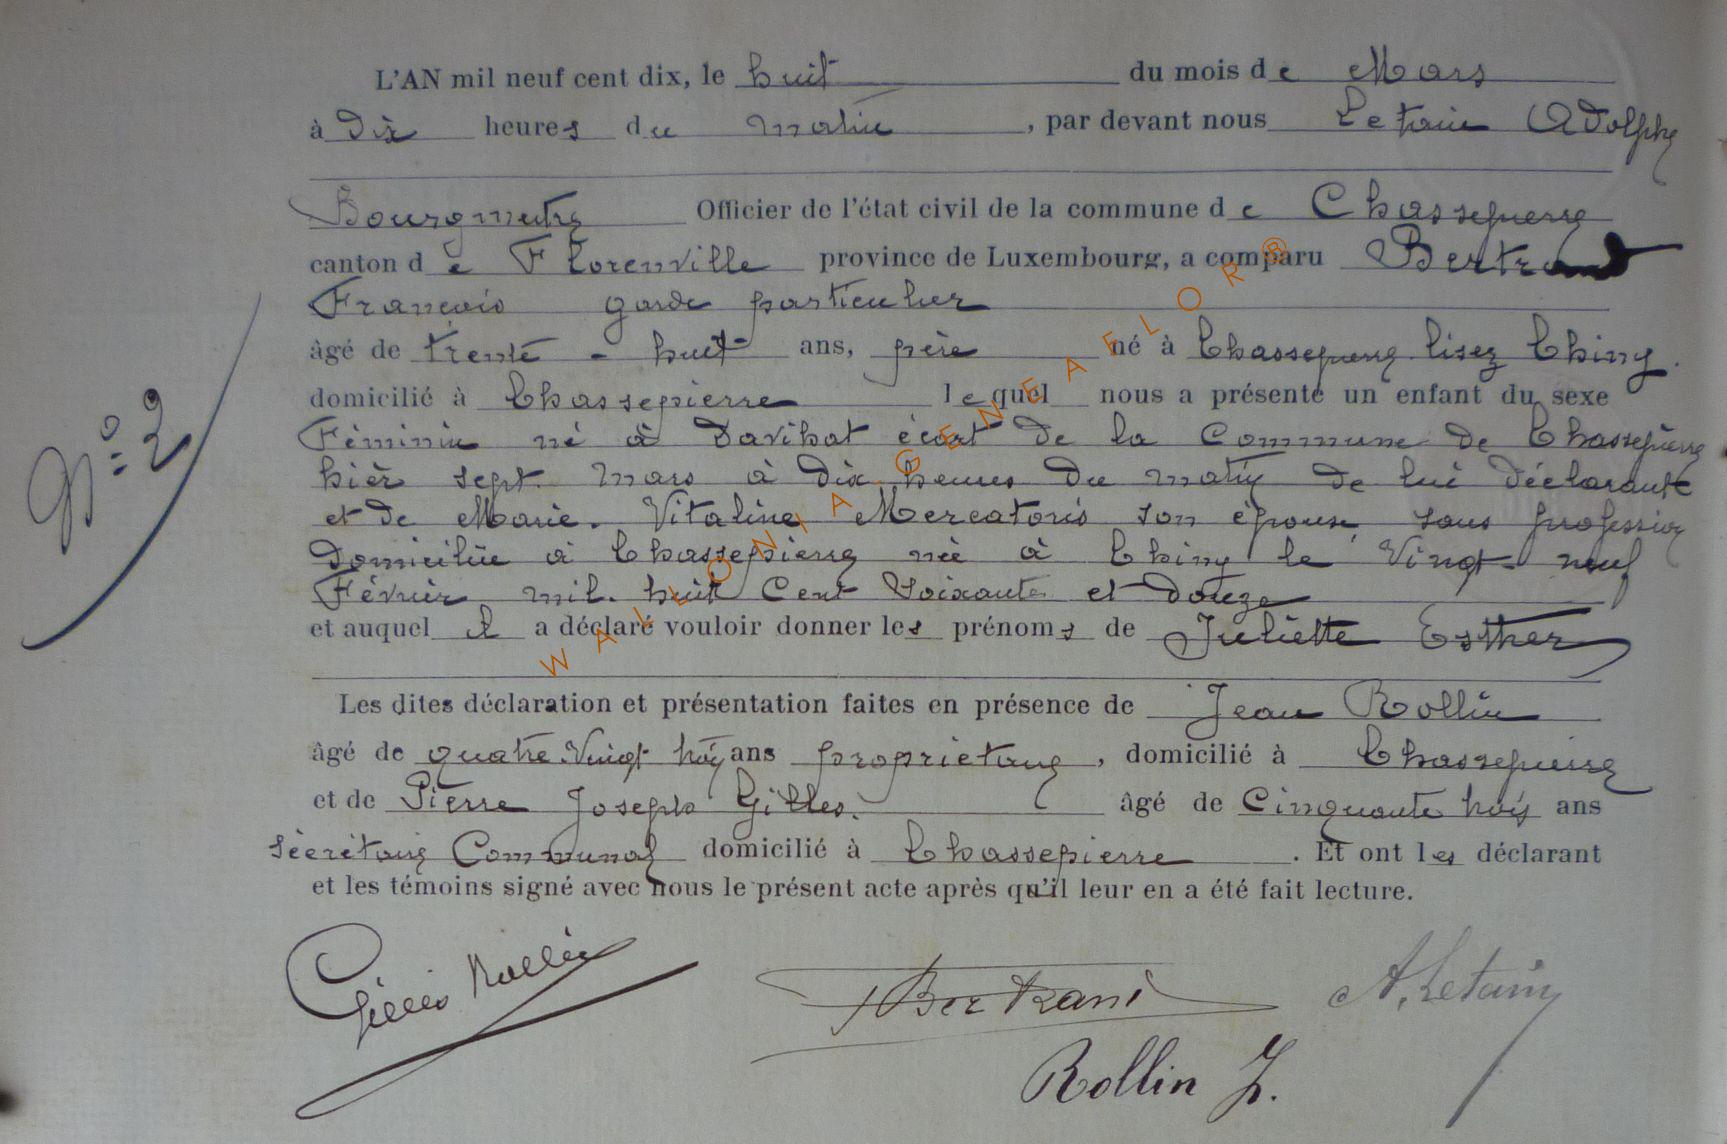 L'AN mil neuf cent dix, le huit du mois de Mars
à Dix heures du matin, par devant nous Letain Adolphe
Bourgmestre Officier de l'état civil de la commune de Chassepierre
canton de Florenville province de Luxembourg, a comparu Bertrand
François garde particulier
âgé de trente-huit ans, père né à Chassepierre lisez Chiny.
domicilié à Chassepierre lequel nous a présenté un enfant du sexe
N° 2
Féminin né à Davihat écart de la Commune de Chassepierre
hièr sept mars à dix heures du matin de lui déclarant
et de Marie-Vitaline Mercatoris son épouse sans profession
domiciliée à Chassepierre née à Chiny le Vingt-neuf
Février mil-huit Cent Soixante et douze
et auquel il a déclaré vouloir donner les prénoms de Juliette Esther
Les dites déclaration et présentation faites en présence de Jean Rollin
âgé de quatre-Vingt trois ans propriétaire, domicilié à Chassepierre
et de Pierre Joseph Gilles. âgé de Cinquante trois ans
sécrétaire Communal domicilié à Chassepierre. Et ont les déclarant
et les témoins signé avec nous le présent acte après qu'il leur en a été fait lecture.
Gilles Rollin Bertrand A. Letain
Rollin J.
WALLONIA GENEAFLOR®